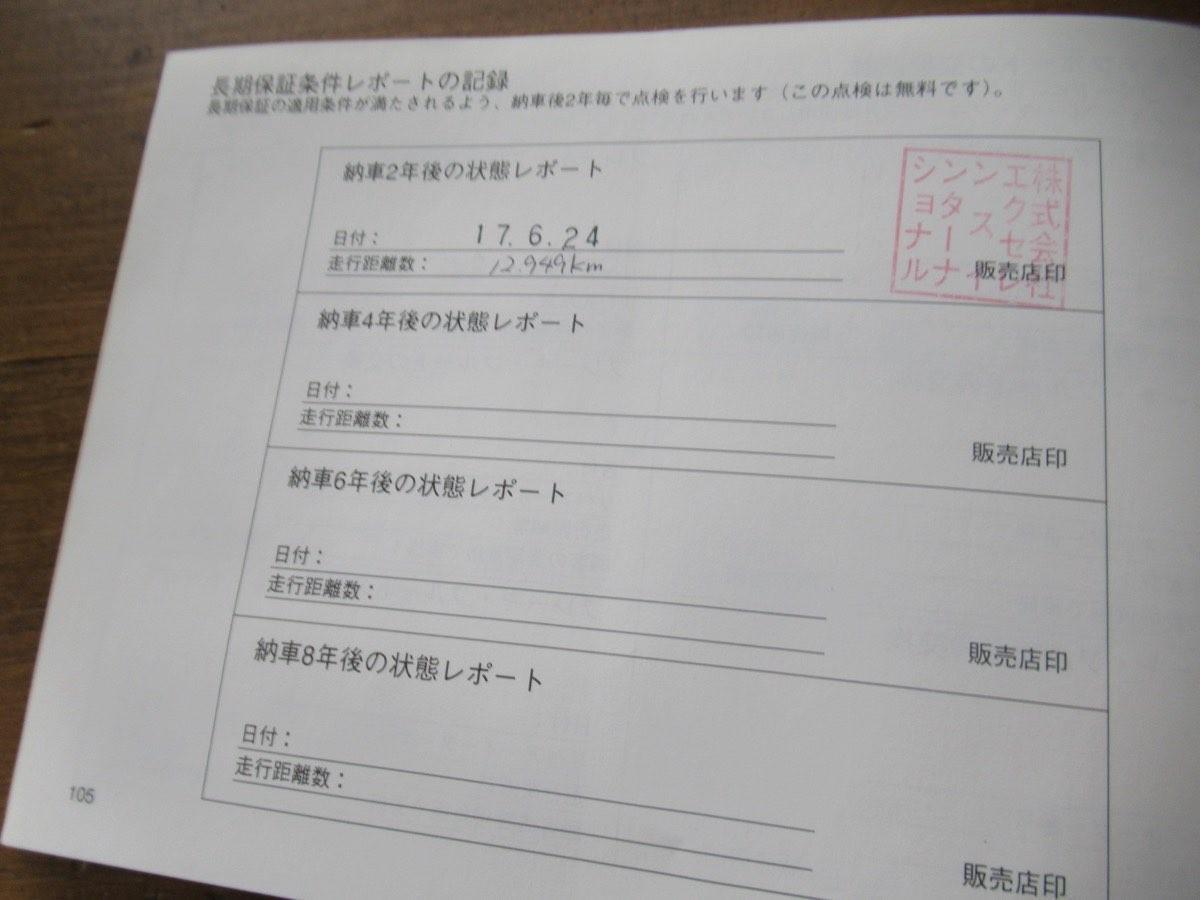 長期保証条件レポートの記録
長期保証の適用条件が満たされるよう、納車後2年毎で点検を行います（この点検は無料です）。
納車2年後の状態レポート
日付： 17.6.24
走行距離数： 12.949km
株式会社
エクセレ
ンスイ
ンターナ
ショナル
販売店印
納車4年後の状態レポート
日付：
走行距離数：
販売店印
納車6年後の状態レポート
日付：
走行距離数：
販売店印
納車8年後の状態レポート
日付：
走行距離数：
販売店印
105